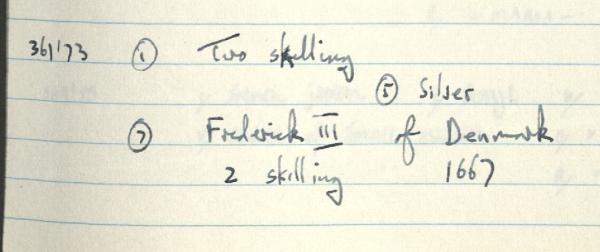 361'73 ① Two skilling
⑤ Silver
⑦ Frederick III of Denmark
2 skilling 1667